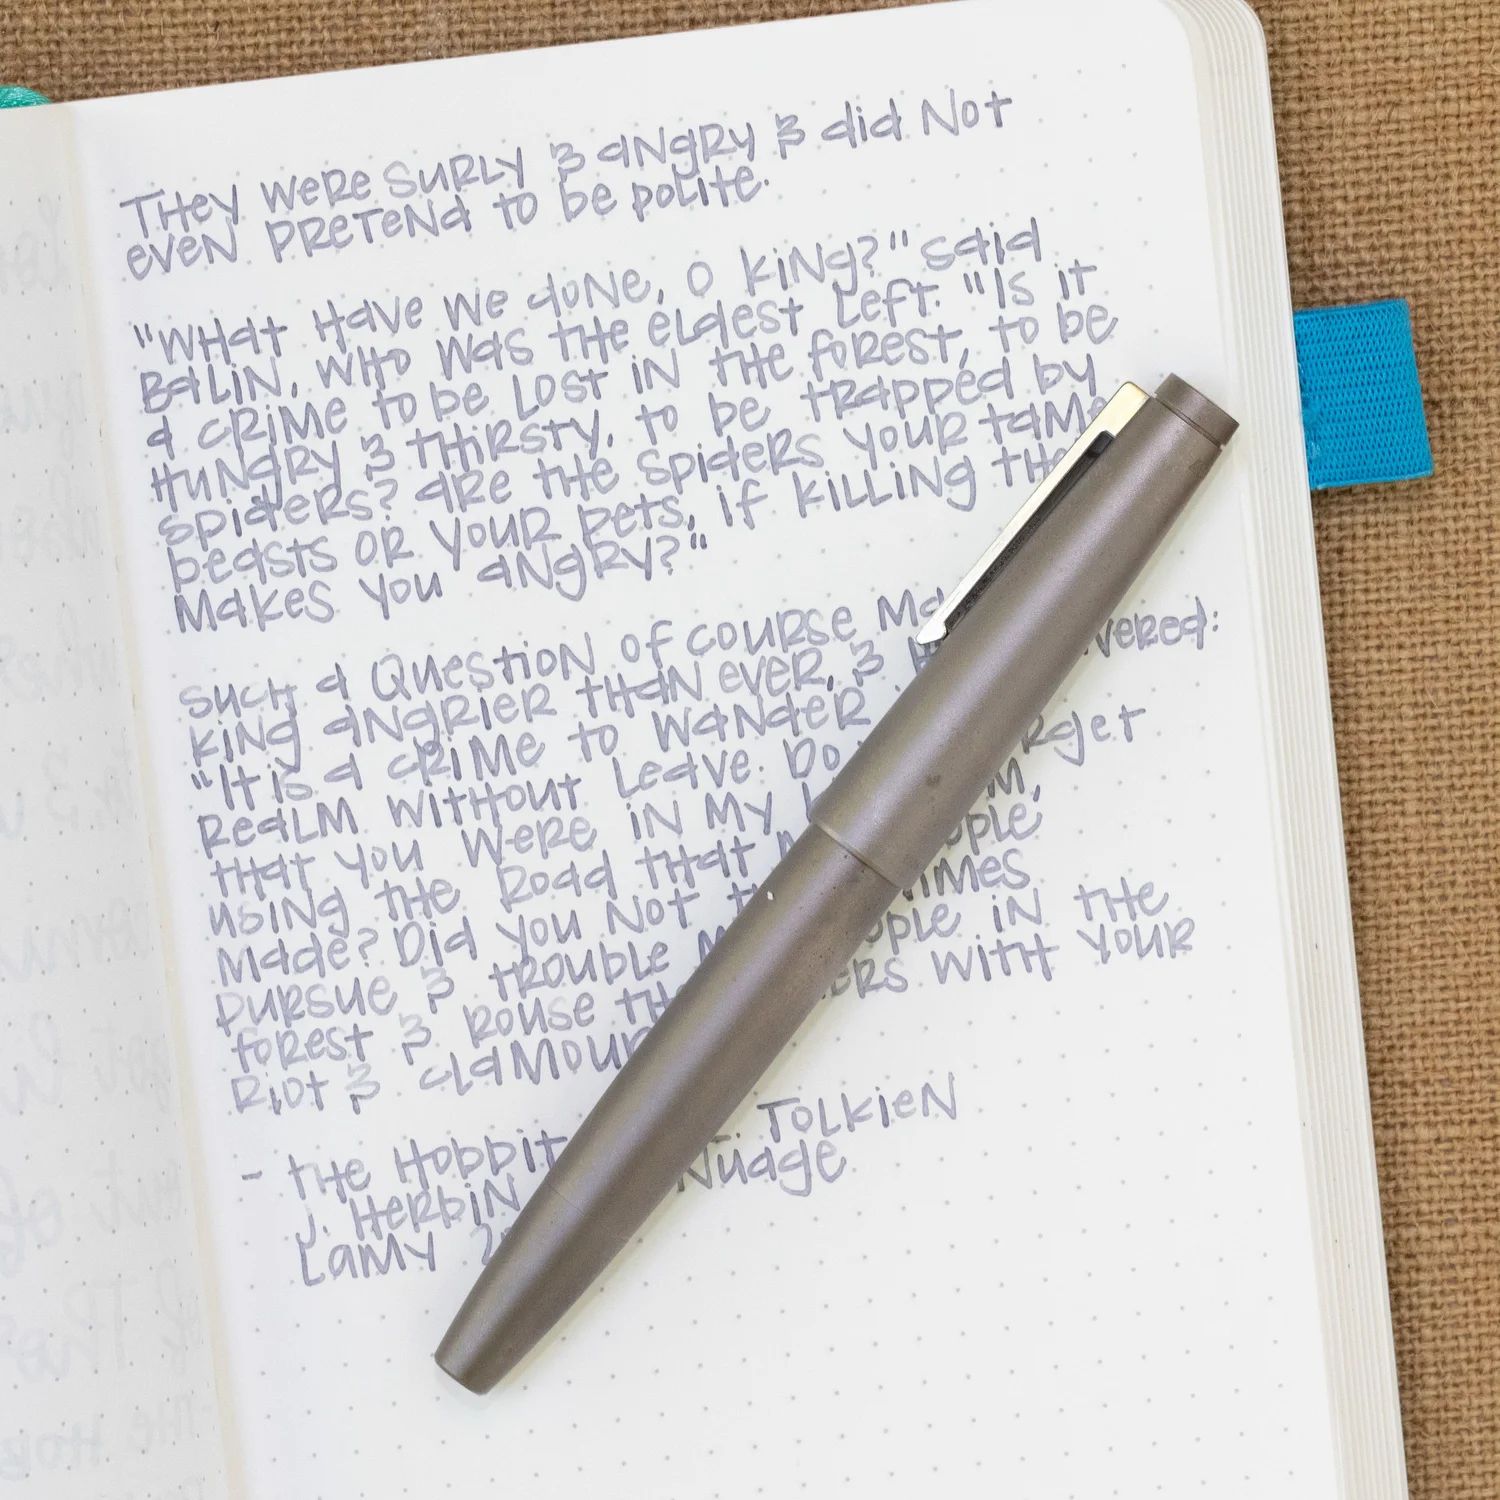 They were surly & angry & did not
even pretend to be polite.
"What have we done, O king?" said
Balin, who was the eldest left. "Is it
a crime to be lost in the forest, to be
hungry & thirsty, to be trapped by
spiders? Are the spiders your tame
beasts or your pets, if killing the
makes you angry?"
Such a question of course
king angrier than ever, &
"It is a crime to wander
realm without leave. Do
that you were in my
using the road that
made? Did you not
pursue & trouble
forest & rouse
riot & clamour
- The Hobbit Tolkien
J. Herbin Nuage
Lamy